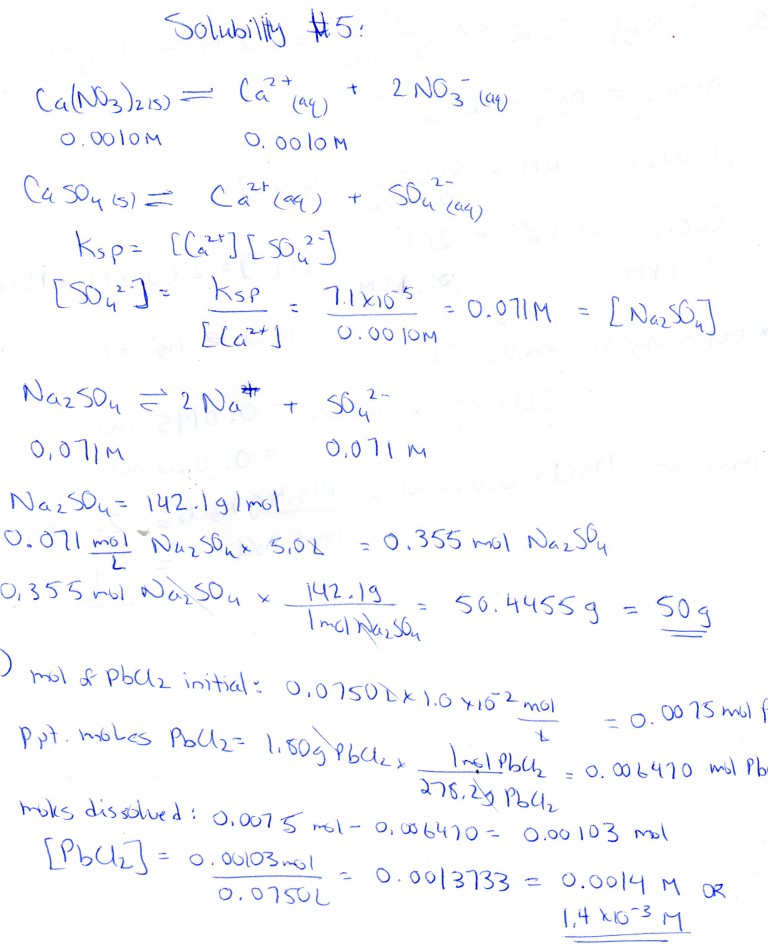 Solubility #5:
Ca(NO3)2(s) ⇌ Ca²⁺(aq) + 2NO3⁻(aq)
0.0010M 0.0010M
CaSO4(s) ⇌ Ca²⁺(aq) + SO4²⁻(aq)
Ksp = [Ca²⁺][SO4²⁻]
[SO4²⁻] = Ksp/[Ca²⁺] = 7.1×10⁻⁵/0.0010M = 0.071M = [Na2SO4]
Na2SO4 ⇌ 2Na⁺ + SO4²⁻
0.071M 0.071M
Na2SO4 = 142.1g/mol
0.071 mol/L Na2SO4 × 5.0L = 0.355 mol Na2SO4
0.355 mol Na2SO4 × 142.1g/1mol Na2SO4 = 50.4455g = 50g
) mol of PbCl2 initial: 0.0750L × 1.0×10⁻² mol/L = 0.0075 mol
ppt. moles PbCl2 = 1.80g PbCl2 × 1mol PbCl2/278.2g PbCl2 = 0.006470 mol Pb
moles dissolved: 0.0075 mol - 0.006470 = 0.00103 mol
[PbCl2] = 0.00103mol/0.0750L = 0.0013733 = 0.0014 M OR
1.4×10⁻³ M